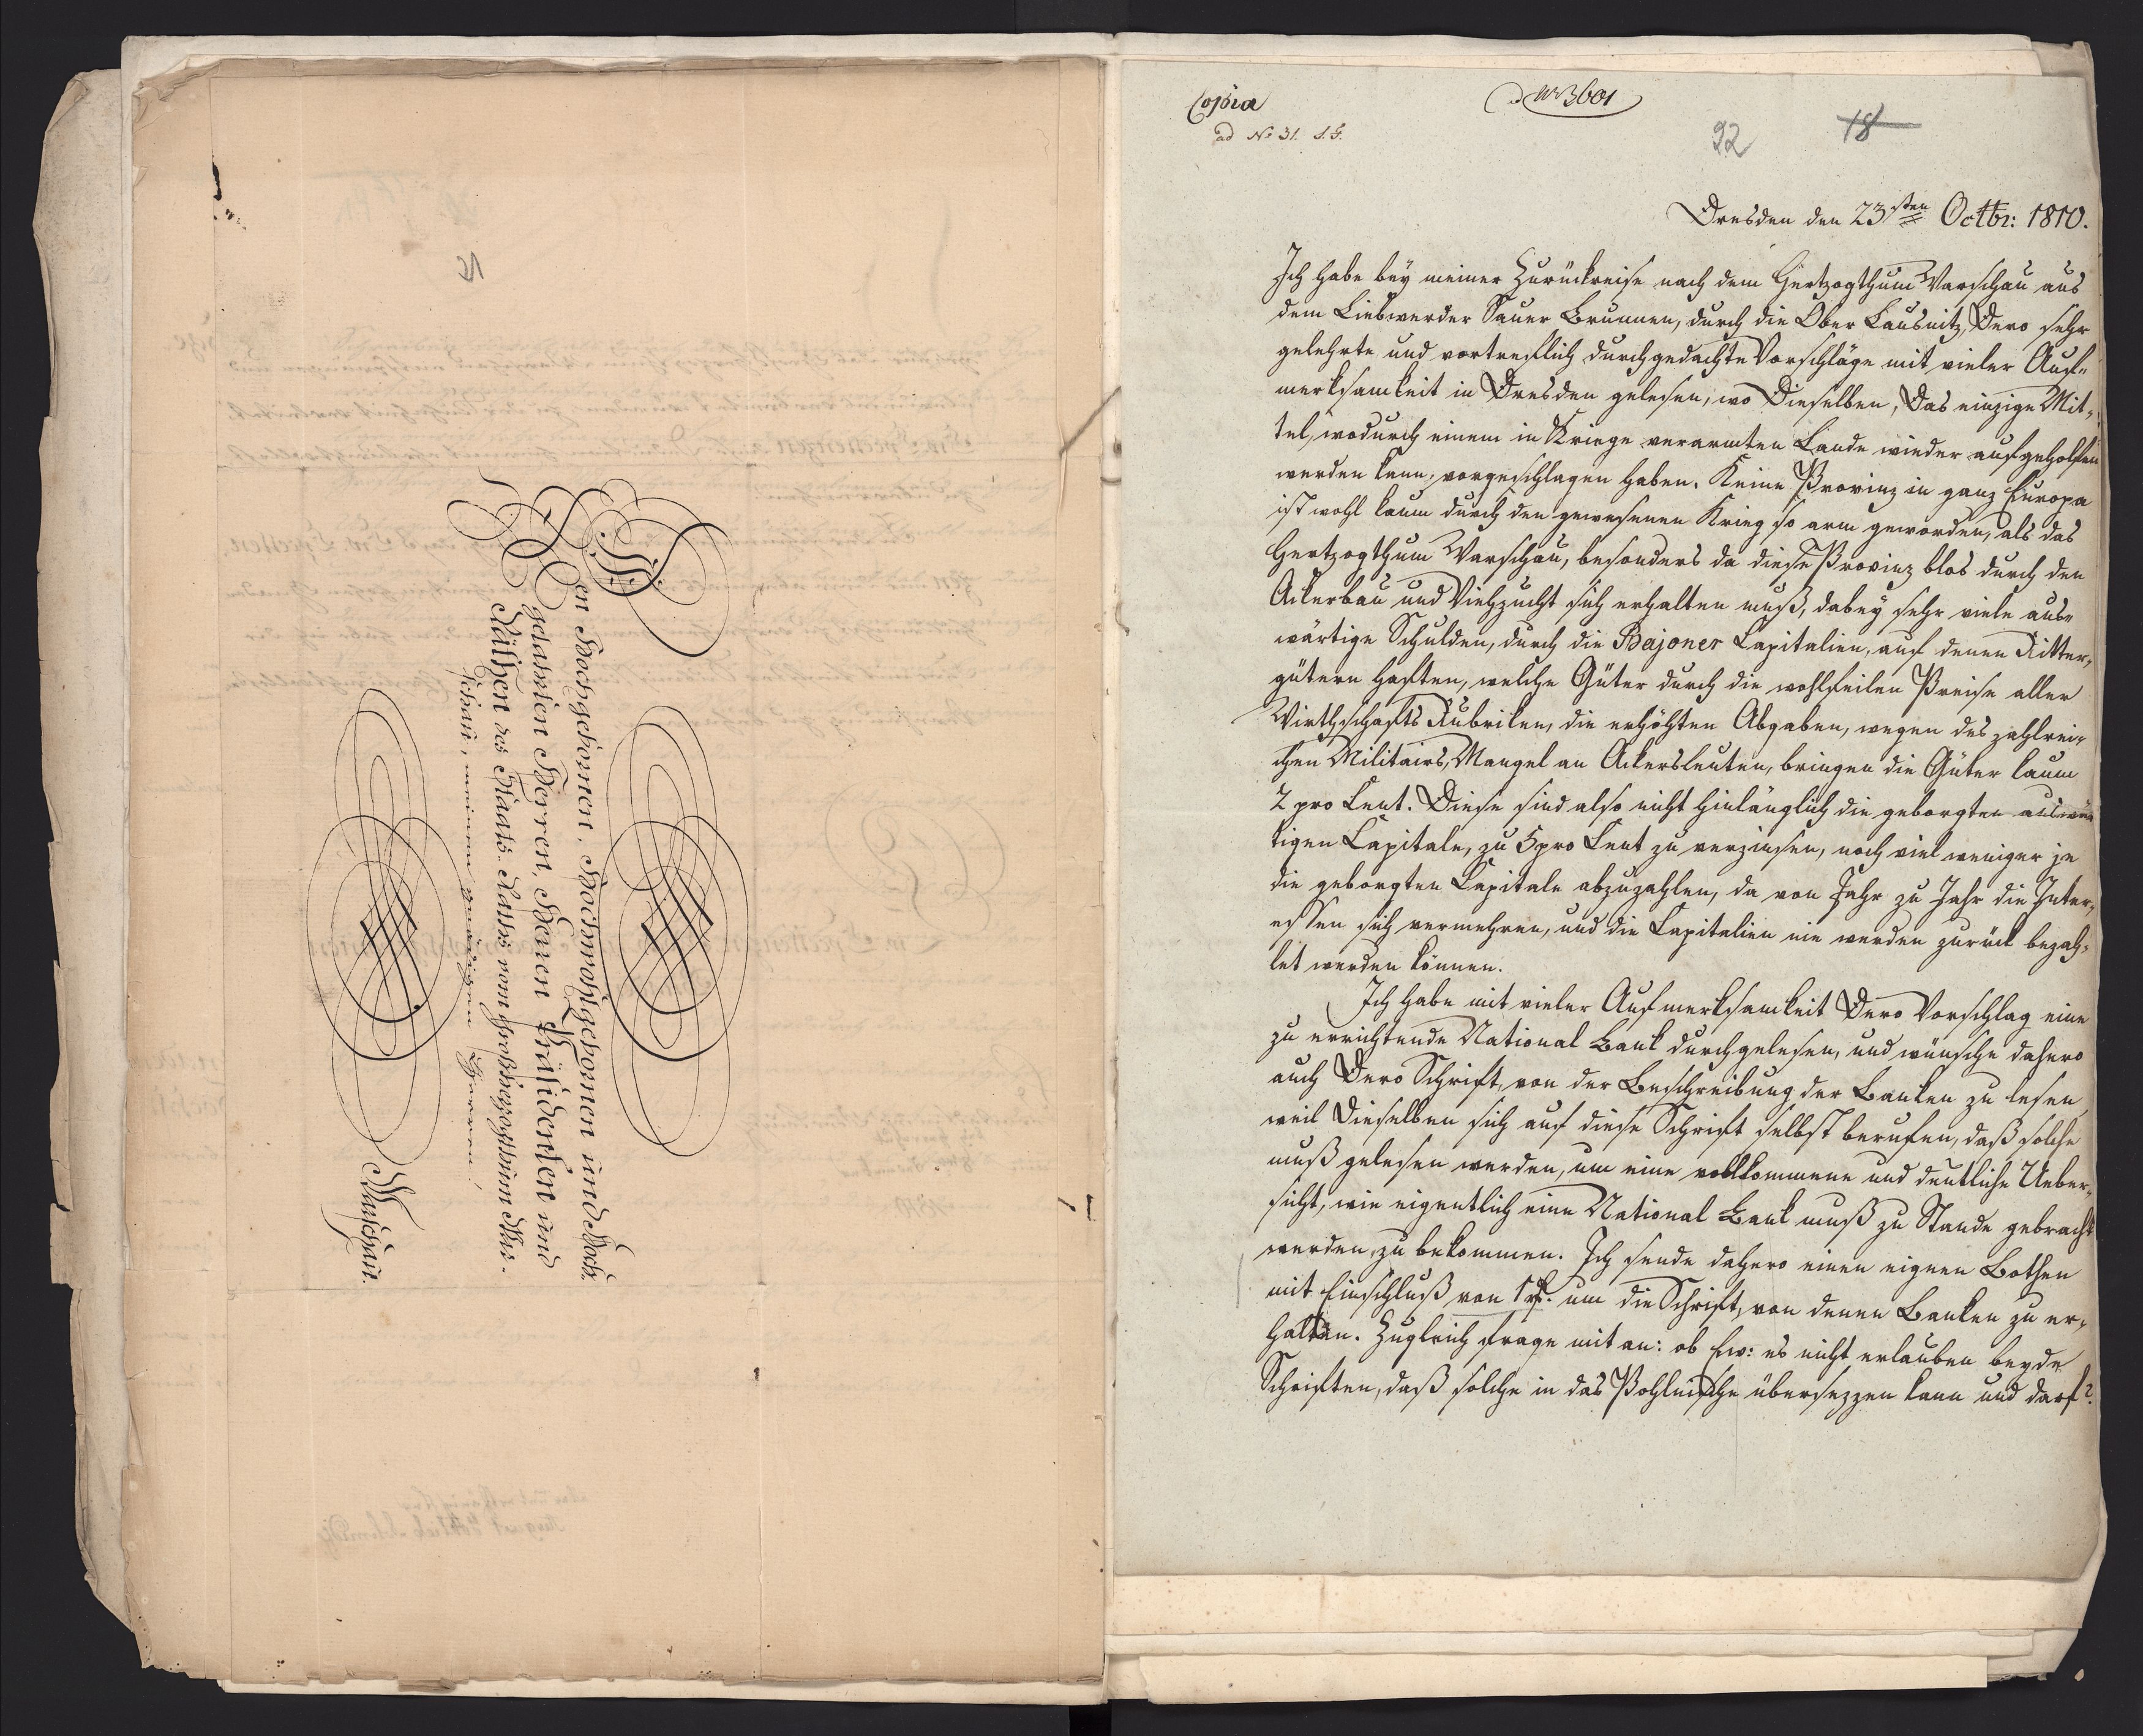 Den Hochgebornen, Hochwohlgebornen und Hoch-
gelahrten Herren, Herren Präsidenten und
Räthen des Staats-Raths vom Großherzogthum War-
schau, meinen gnädigen Herren!
Warschau.
Copia
ad No 31. S. G.
No 3601
22
18
Dresden den 23sten Octbr: 1810.
Ich habe bey meiner Zurückreise nach dem Hertzogthum Warschau aus
dem Liebwerder Sauer Brunnen, durch die Ober Lausnitz, Dero sehr
gelehrte und vortreflich durchgedachte Vorschläge mit vieler Auf-
merksamkeit in Dresden gelesen, wo Dieselben, das einzige Mit-
tel, wodurch einem in Kriege verarmten Lande wieder aufgeholfen
werden kann, vorgeschlagen haben. Keine Provinz in ganz Europa
ist wohl kaum durch den gewesenen Krieg so arm geworden, als das
Hertzogthum Warschau, besonders da diese Provinz blos durch den
Ackerbau und Viehzucht sich erhalten muß, dabey sehr viele aus-
wärtige Schulden, durch die Bajoner Capitalien, auf denen Ritter-
gütern haften, welche Güter durch die wohlfeilen Preise aller
Wirthschafts Rubriken, die erhöhten Abgaben, wegen des zahlrei-
chen Militairs, Mangel an Ackersleuten, bringen die Güter kaum
2 pro Cent. Diese sind also nicht hinlänglich die geborgten auswär-
tigen Capitale, zu 5 pro Cent zu verzinsen, noch viel weniger je
die geborgten Capitale abzuzahlen, da von Jahr zu Jahr die Inter-
essen sich vermehren, und die Capitalien nie werden zurück bezah-
let werden können.
Ich habe mit vieler Aufmerksamkeit Dero Vorschlag eine
zu errichtende National Bank durchgelesen, und wünsche dahero
auch Dero Schrift, von der Beschreibung der Banken zu lesen,
weil Dieselben sich auf diese Schrift selbst berufen, daß solche
muß gelesen werden, um eine vollkommene und deutliche Ueber-
sicht, wie eigentlich eine National Bank muß zu Stande gebracht
werden, zu bekommen. Ich sende dahero einen eignen Bothen
mit Einschluß von 1 rl. um die Schrift, von denen Banken zu er-
halten. Zugleich frage mit an: ob Ew: es nicht erlauben beyde
Schriften, daß solche in das Pohlnische übersezzen kann und darf?